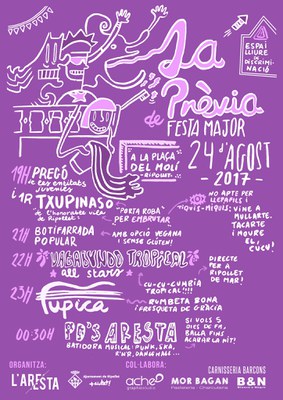 La
Prèvia
de FESTA MAJOR
ESPAI
LLIURE
DE
DISCRIMI-
NACIÓ
A LA PLAÇA
DEL MOLÍ
-RIPOLLET-
24 d'AGOST
-2017-
19H PREGÓ
de les entitats
juvenils
i 1R TXUPINASO
de l'honorable vila
de Ripollet!
"PORTA ROBA"
PER EMBRUTAR
NO APTE PER
LLEPAFILS I
TIQUIS-MIQUIS: VINE A
MULLARTE,
TACARTE
I MOURE
EL
CUCU!
21H BOTIFARRADA
POPULAR
AMB OPCIÓ VEGANA
I SENSE GLUTEN!
22H VAGALUNNOD TROPICAL
all stars
CU-CU-CUMBIA
TROPICAL!!!!
DIRECTE
PER A
RIPOLLET
DE MAR!
23H Tupica
RUMBETA BONA
I FRESQUETA DE GRÀCIA
00:30H PD'S ARESTA
BATIDORA MUSICAL: PUNK, SKA,
R'N'R, DANCEHALL...
SI VOLS 5
DIES DE FM,
BALLA FINS
ACABAR LA NIT!
ORGANITZA:
L'ARESTA
COL·LABORA:
Ajuntament de Ripollet
ache
MOR BAGAN
CARNISSERIA BARCONS
B&N